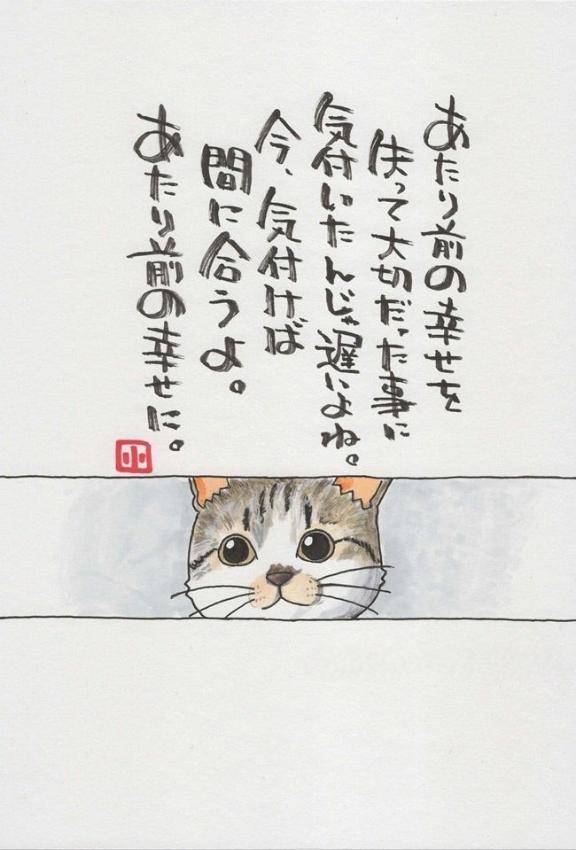 あたり前の幸せを
失って大切だった事に
気付いたんじゃ遅いよね。
今、気付けば
間に合うよ。
あたり前の幸せに。
小